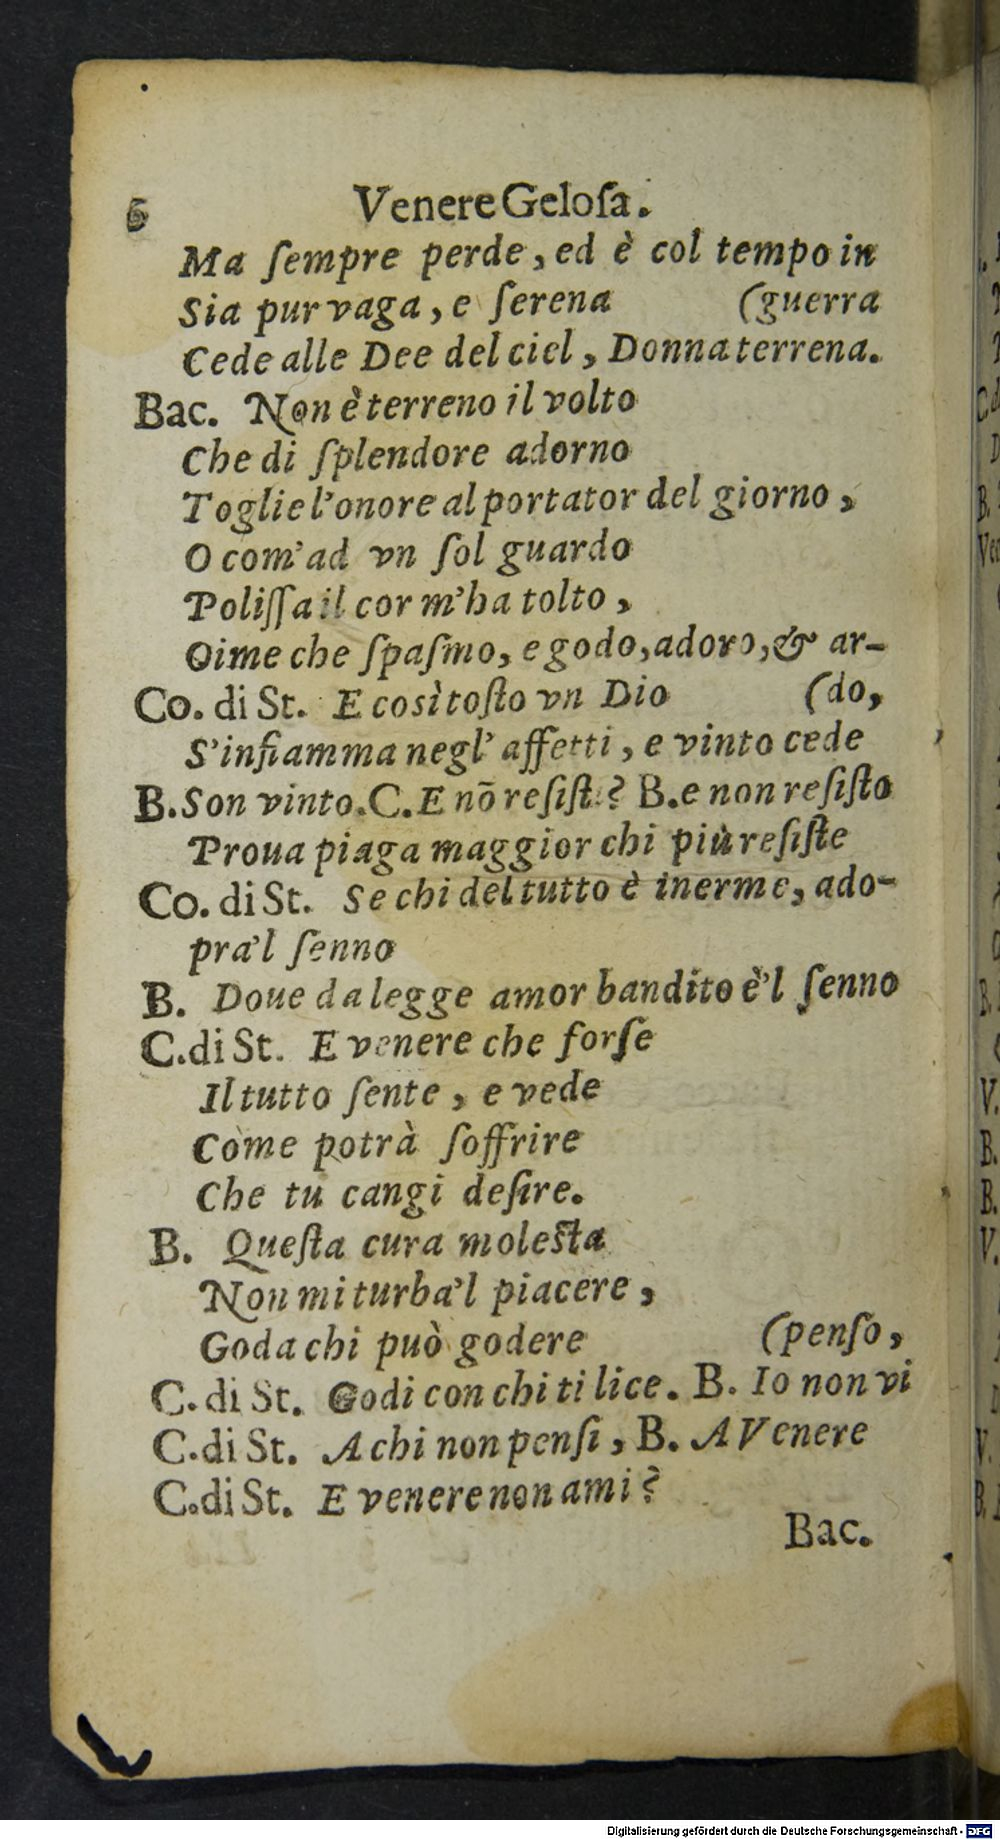 6 Venere Geloſa.
Ma ſempre perde, ed è col tempo in
Sia pur vaga, e ſerena (guerra
Cede alle Dee del ciel, Donna terrena.
Bac. Non è terreno il volto
Che di ſplendore adorno
Toglie l'onore al portator del giorno,
O com'ad vn ſol guardo
Poliſſa il cor m'ha tolto,
Oime che ſpaſmo, e godo, adoro, & ar-
Co. di St. E così toſto vn Dio (do,
S'infiamma negl' affetti, e vinto cede
B. Son vinto. C. E nō reſiſti? B. e non reſiſto
Proua piaga maggior chi più reſiſte
Co. di St. Se chi del tutto è inerme, ado-
pra'l ſenno
B. Doue da legge amor bandito è'l ſenno
C. di St. E venere che forſe
Il tutto ſente, e vede
Come potrà ſoffrire
Che tu cangi deſire.
B. Queſta cura moleſta
Non mi turba'l piacere,
Goda chi può godere (penſo,
C. di St. Godi con chi ti lice. B. Io non vi
C. di St. A chi non penſi, B. A Venere
C. di St. E venere non ami?
Bac.
Digitalisierung gefördert durch die Deutsche Forschungsgemeinschaft - DFG